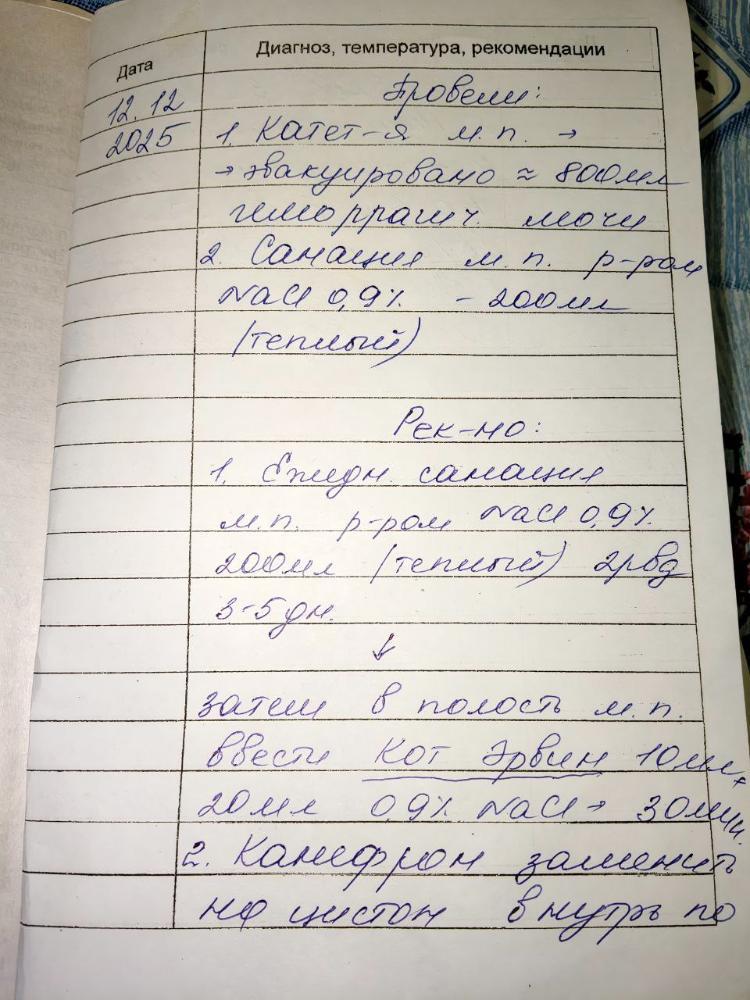 Дата
Диагноз, температура, рекомендации
12.12
2025
Провели:
1. Катет-я м.п. →
→ эвакуировано ≈ 800мл
геморрагич. мочи
2. Санация м.п. р-ром
NaCl 0,9% - 200мл
(теплый)
Рек-но:
1. Ежидн. санация
м.п. р-ром NaCl 0,9%
200мл (теплый) 2рвд
3-5дн.
↓
затем в полость м.п.
ввести Кот Эрвин 10мл+
20мл 0,9% NaCl → 30мин.
2. Канефрон заменить
на цистон внутрь по